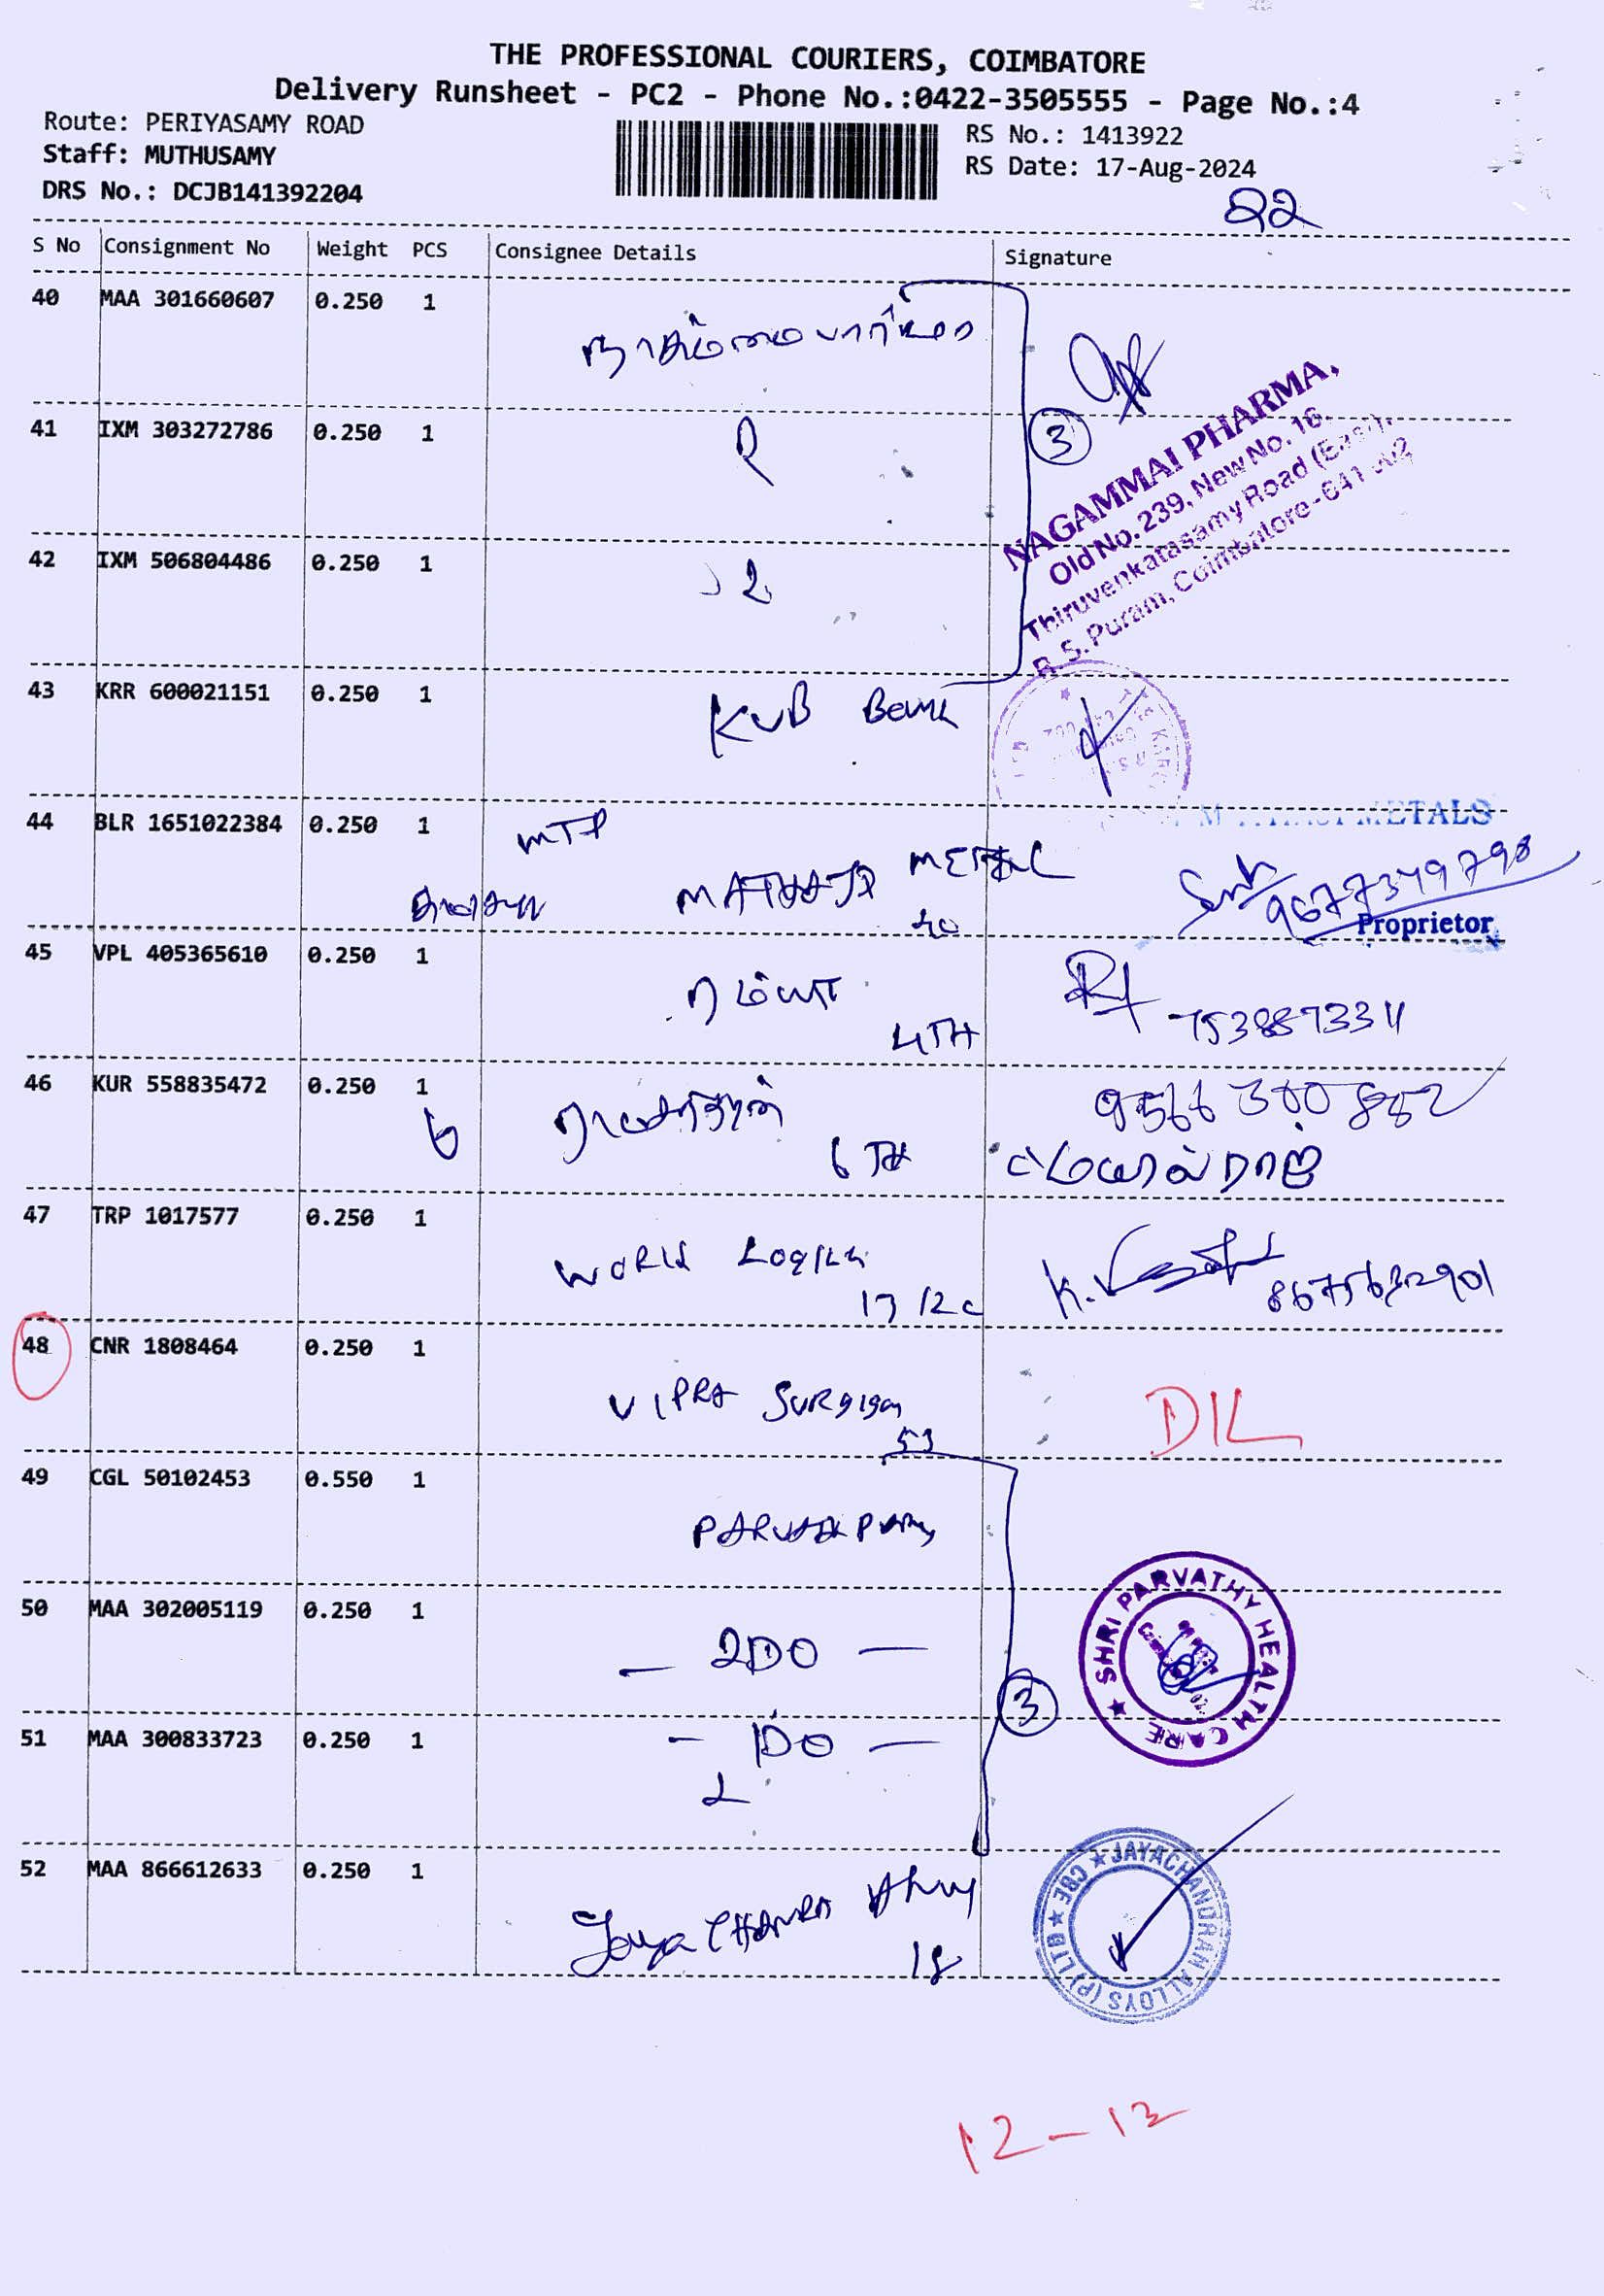 THE PROFESSIONAL COURIERS, COIMBATORE
Delivery Runsheet - PC2 - Phone No.:0422-3505555 - Page No.:4
Route: PERIYASAMY ROAD
RS No.: 1413922
Staff: MUTHUSAMY
RS Date: 17-Aug-2024
DRS No.: DCJB141392204
22
S No Consignment No Weight PCS Consignee Details Signature
40 MAA 301660607 0.250 1
41 IXM 303272786 0.250 1
3
NAGAMMAI PHARMA,
Old No. 239, New No. 16,
Thiruvenkatasamy Road (East),
R.S. Puram, Coimbatore-641
42 IXM 506804486 0.250 1
2
43 KRR 600021151 0.250 1 KVB Bank
44 BLR 1651022384 0.250 1 MTP
METALS
METAL
9677379798
Proprietor
45 VPL 405365610 0.250 1
ரம்யா
4TH
7538873311
46 KUR 558835472 0.250 1
6
6 TH
9566300852
47 TRP 1017577 0.250 1
WORLD
17/2c
K.
48 CNR 1808464 0.250 1
VIPRA
53
DIL
49 CGL 50102453 0.550 1
50 MAA 302005119 0.250 1
— 2DO —
SHRI PARVATHY HEALTH CARE
3
51 MAA 300833723 0.250 1 — DO —
52 MAA 866612633 0.250 1
JAYACHANDRAN ALLOYS (P) LTD ★ CBE ★
Jaya
18
12-12